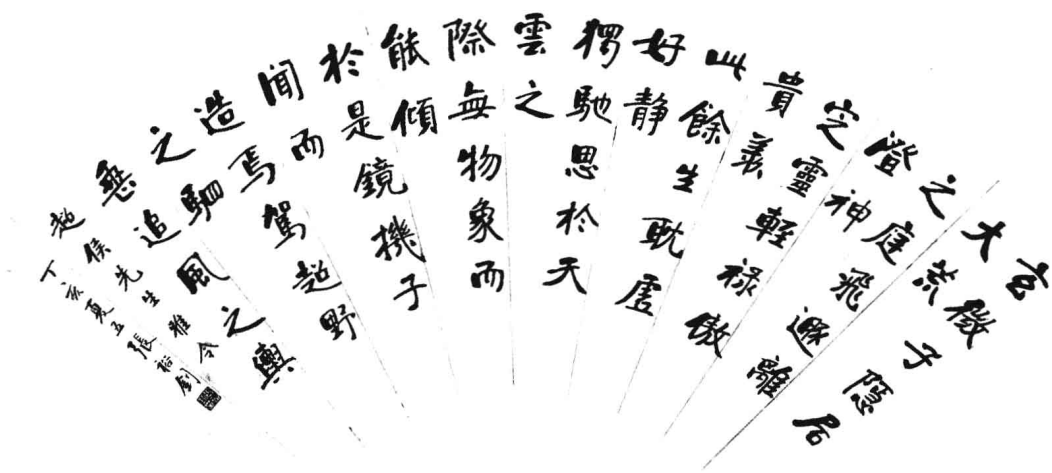 玄微子隱居
大荒
之庭飛遯離
澄神
定靈輕祿傲
貴羨
此餘生耽虛
好靜
獨馳思於天
雲之
際無物象而
能傾
於是鏡機子
聞而
造焉駕超野
之駟
椉追風之輿
超侯先生雅令
丁亥夏五張裕釗